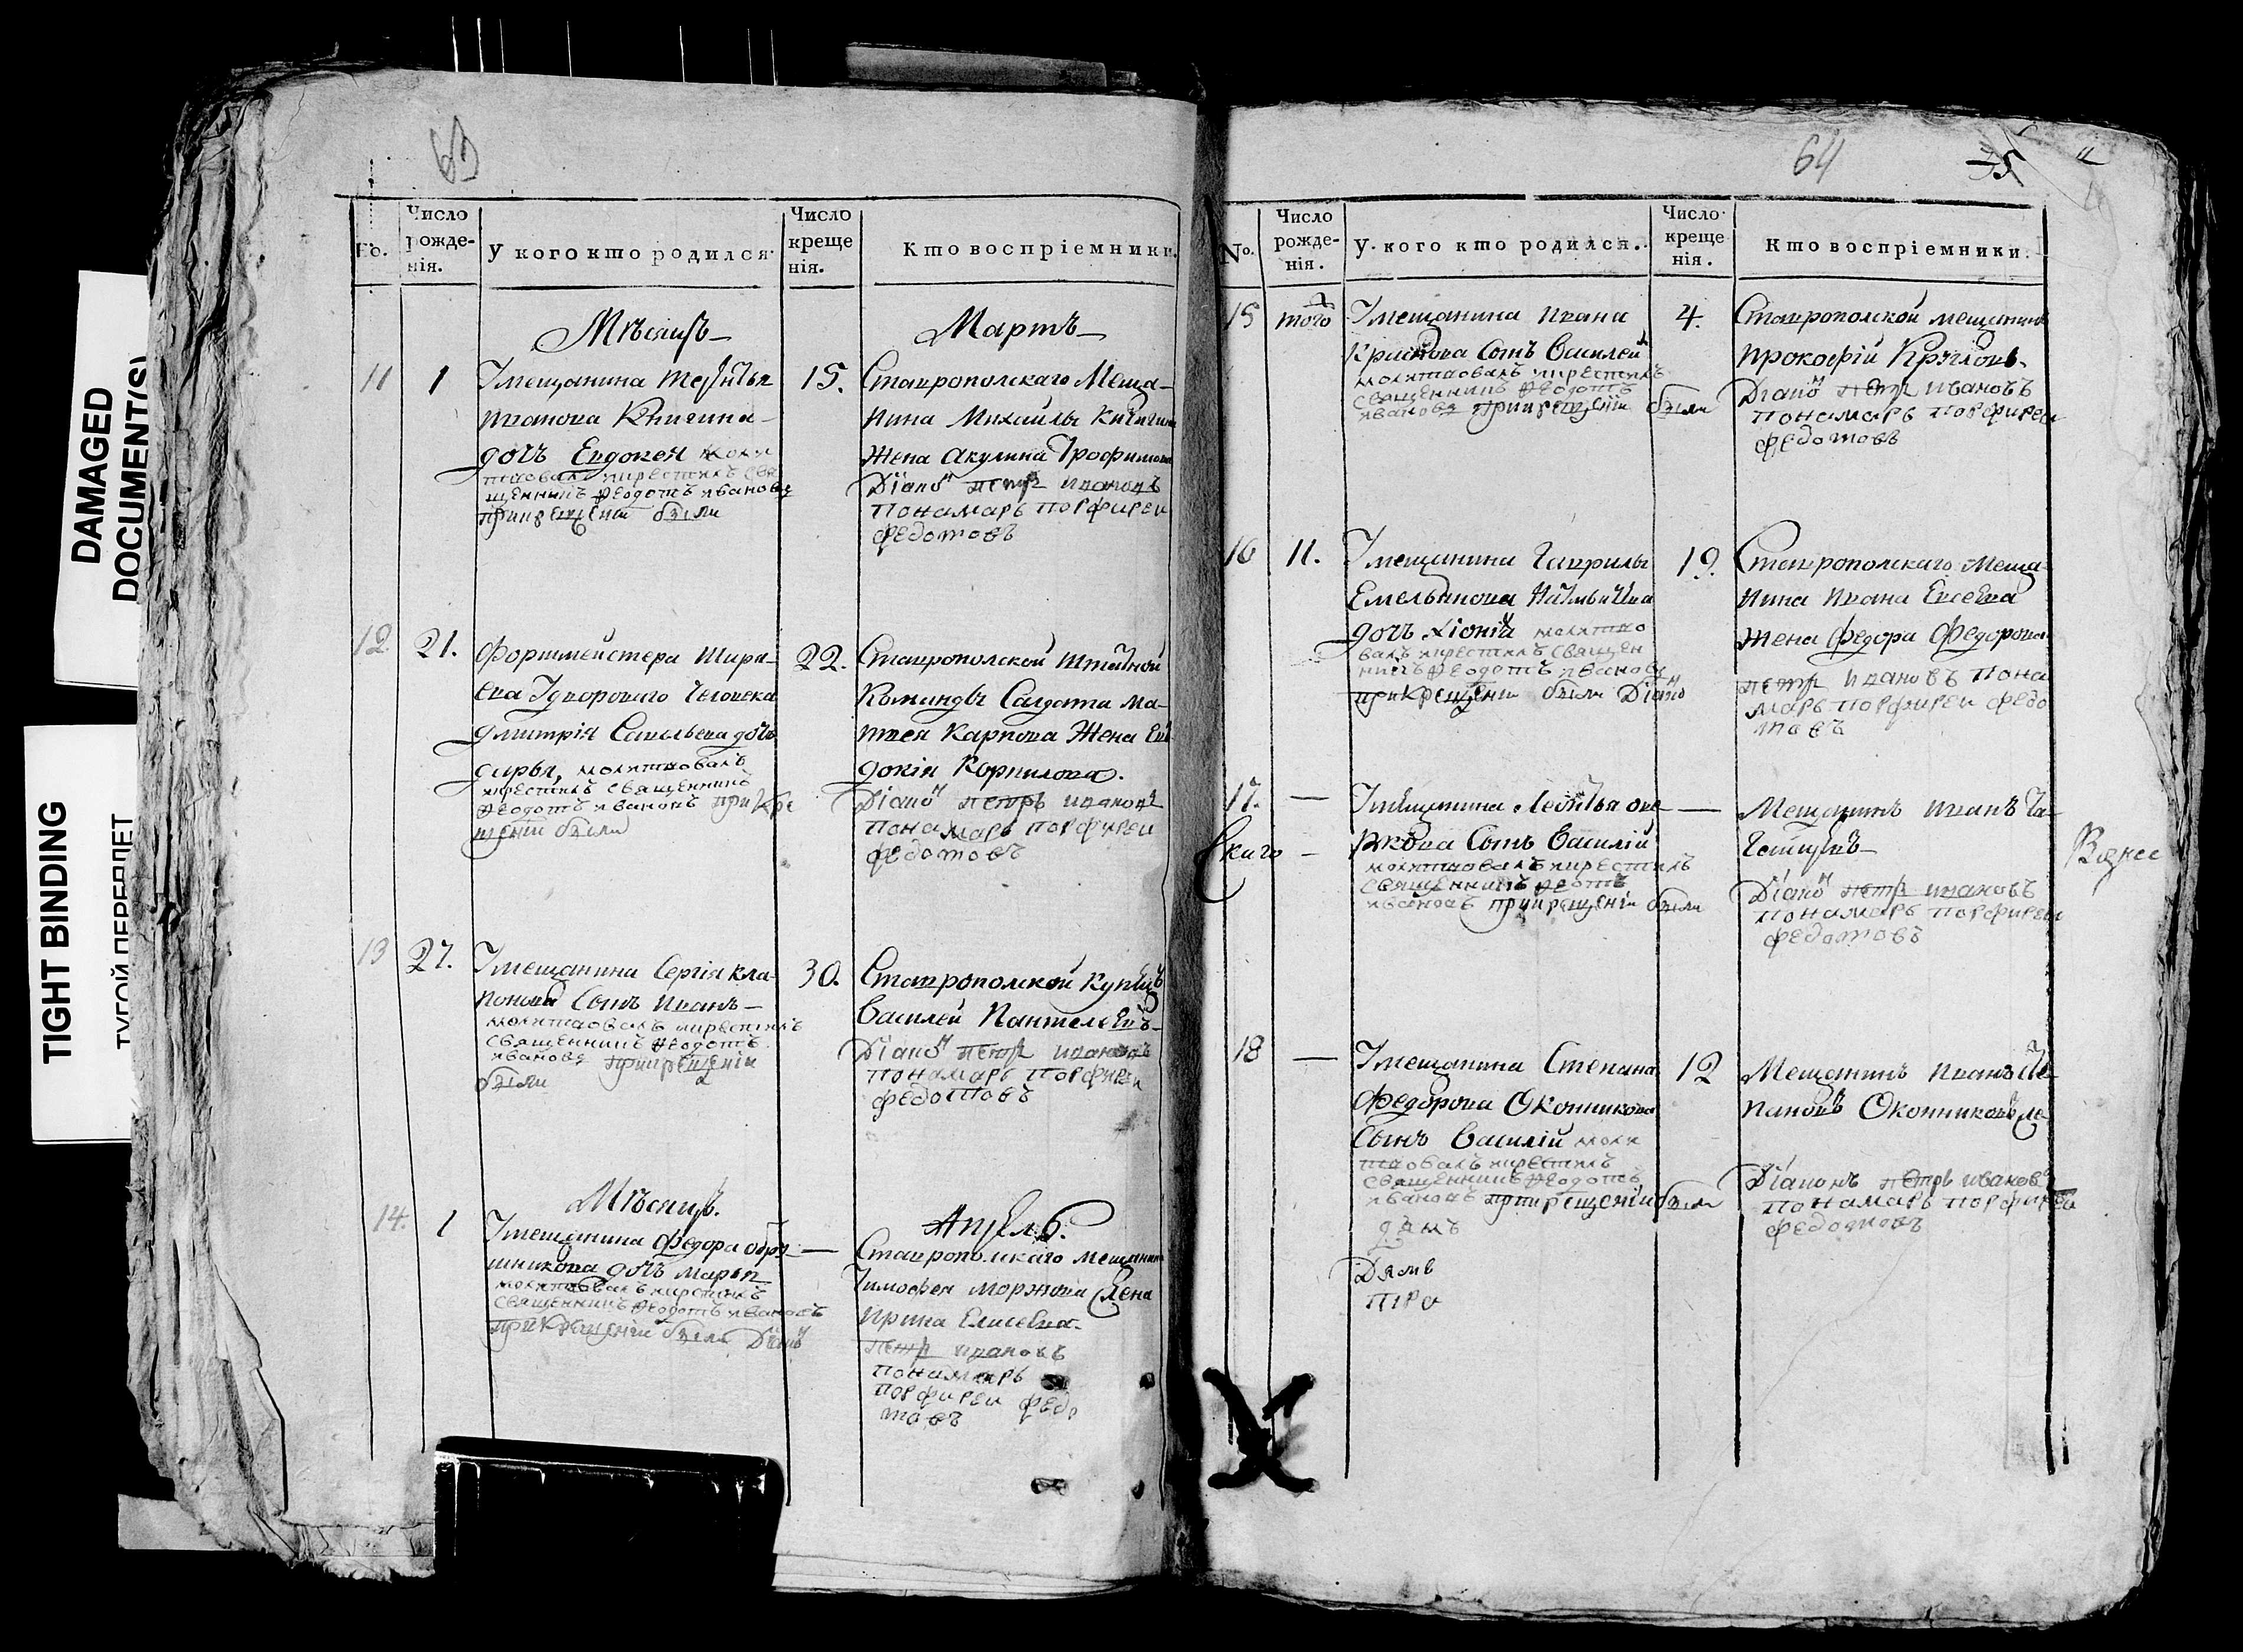 DAMAGED
DOCUMENT(S)
TIGHT BINDING
ТУГОЙ ПЕРЕПЛЕТ
63
Число рожденія.
У кого кто родился
Число крещенія.
Кто воспріемники.
Мѣсяцъ
Мартъ
11
1
У мещанина
Иванова Кичигина
дочь Евдокея моли
твовалъ и крестилъ свя
щенникъ Федотъ Ивановъ
при крещеніи были
15.
Ставропольскаго Меща-
нина Михайлы Кичигина
жена Акулина Трофимова
Діаконъ Петръ Ивановъ
Понамарь Порфиреи
Федотовъ
12
21.
Фортмейстера Ширя-
ева дворового человека
Дмитрія Савельева дочь
Дарья, молитвовалъ
и крестилъ священникъ
Федотъ Ивановъ при кре
щеніи были
22.
Ставропольской штатной
Команды Салдата Ма-
твея Карпова Жена Ев
докія Корнилова.
Діаконъ Петръ Ивановъ
Понамарь Порфиреи
Федотовъ
13
27.
У мещанина Сергія Кла-
понова Сынъ Иванъ
молитвовалъ и крестилъ
священникъ Федотъ
Ивановъ при крещеніи
были
30.
Ставропольской Купецъ
Василей Пантелеевъ
Діаконъ Петръ Ивановъ
Понамарь Порфиреи
Федотовъ
Мѣсяцъ.
Апрель.
14.
1
У мещанина Федора
дочь Марья
молитвовалъ и крестилъ
священникъ Федотъ Ивановъ
при крещеніи были Діаконъ
Ставропольскаго мещанина
Тимофея Моржова Жена
Ирина Елисеева
Петръ Ивановъ
Понамарь
Порфиреи Федо
товъ
64
No.
Число рожденія.
У кого кто родился.
Число крещенія.
Кто воспріемники.
15
того
У мещанина Ивана
Сынъ Василей
молитвовалъ и крестилъ
священникъ Федотъ
Ивановъ при крещеніи были
4.
Ставропольской мещанинъ
Прокофій Кругловъ
Діаконъ Петръ Ивановъ
Понамарь Порфиреи
Федотовъ
16
11.
У мещанина Гаврилы
Емельянова
дочь Хіонія молитво
валъ и крестилъ священ
никъ Федотъ Ивановъ
при крещеніи были Діаконъ
19.
Ставропольскаго Меща-
нина Ивана Евсеева
жена Федора Федорова
Петръ Ивановъ Пона
марь Порфиреи Федо
товъ
17.
—
У мещанина Леонтья
Сынъ Василій
молитвовалъ и крестилъ
священникъ Федотъ
Ивановъ при крещеніи были
—
Мещанинъ Иванъ
Діаконъ Петръ Ивановъ
Понамарь Порфиреи
Федотовъ
скаго
18
—
У мещанина Степана
Федорова Оконникова
Сынъ Василій моли
твовалъ и крестилъ
священникъ Федотъ
Ивановъ при крещеніи были
12
Мещанинъ Иванъ
Оконниковъ
Діаконъ Петръ Ивановъ
Понамарь Порфиреи
Федотовъ